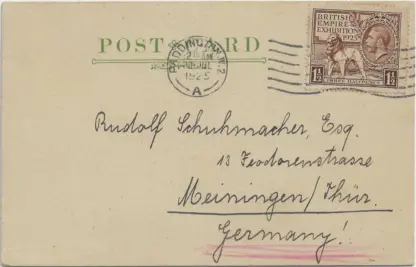 POST CARD
PADDINGTON.W.2
1925
A
BRITISH
EMPIRE
EXHIBITION
1925
1½ 1½
Rudolf Schuhmacher, Esq.
13 Feodorenstrasse
Meiningen/Thür.
Germany!